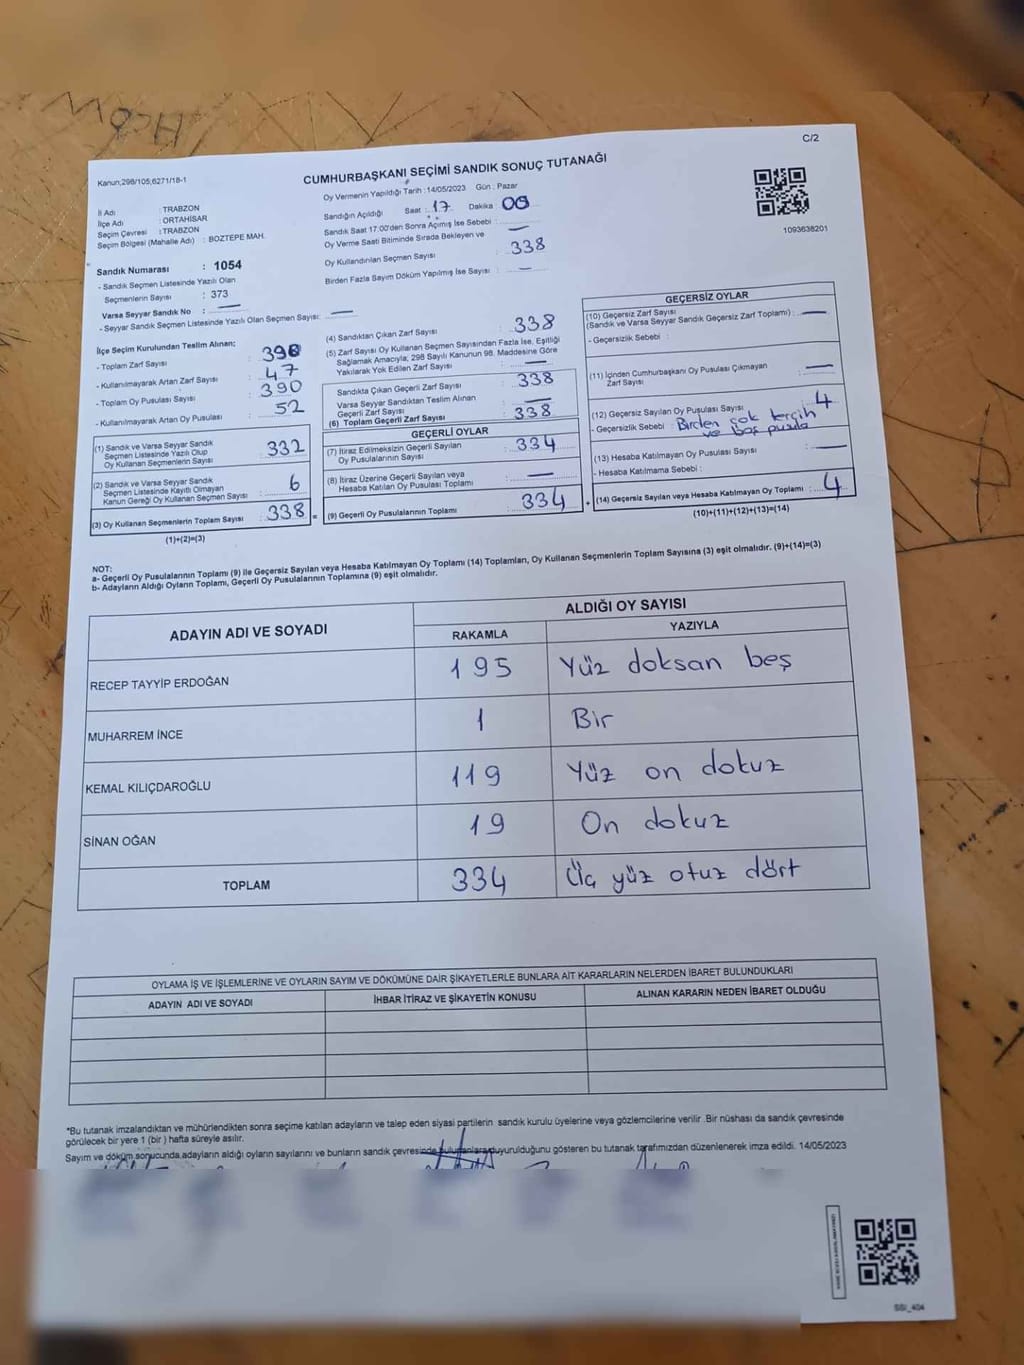 C/2
Kanun;298/105;6271/18-1
CUMHURBAŞKANI SEÇİMİ SANDIK SONUÇ TUTANAĞI
İl Adı : TRABZON
İlçe Adı : ORTAHİSAR
Seçim Çevresi : TRABZON
Seçim Bölgesi (Mahalle Adı) : BOZTEPE MAH.
Oy Vermenin Yapıldığı Tarih : 14/05/2023 Gün : Pazar
Sandığın Açıldığı Saat : 17 Dakika : 09
Sandık Saat 17:00'den Sonra Açımış İse Sebebi : —
Oy Verme Saati Bitiminde Sırada Bekleyen ve
Oy Kullandırılan Seçmen Sayısı : 338
Birden Fazla Sayım Döküm Yapılmış İse Sayısı : —
1093638201
Sandık Numarası : 1054
- Sandık Seçmen Listesinde Yazılı Olan
Seçmenlerin Sayısı : 373
Varsa Seyyar Sandık No : —
- Seyyar Sandık Seçmen Listesinde Yazılı Olan Seçmen Sayısı: —
İlçe Seçim Kurulundan Teslim Alınan;
- Toplam Zarf Sayısı : 390
- Kullanılmayarak Artan Zarf Sayısı : 47
- Toplam Oy Pusulası Sayısı : 390
- Kullanılmayarak Artan Oy Pusulası : 52
(1) Sandık ve Varsa Seyyar Sandık
Seçmen Listesinde Yazılı Olup
Oy Kullanan Seçmenlerin Sayısı : 332
(2) Sandık ve Varsa Seyyar Sandık
Seçmen Listesinde Kayıtlı Olmayan
Kanun Gereği Oy Kullanan Seçmen Sayısı : 6
(3) Oy Kullanan Seçmenlerin Toplam Sayısı : 338 =
(1)+(2)=(3)
(4) Sandıktan Çıkan Zarf Sayısı : 338
(5) Zarf Sayısı Oy Kullanan Seçmen Sayısından Fazla İse, Eşitliği
Sağlamak Amacıyla; 298 Sayılı Kanunun 98. Maddesine Göre
Yakılarak Yok Edilen Zarf Sayısı : —
Sandıkta Çıkan Geçerli Zarf Sayısı : 338
Varsa Seyyar Sandıktan Teslim Alınan
Geçerli Zarf Sayısı : —
(6) Toplam Geçerli Zarf Sayısı : 338
GEÇERLİ OYLAR
(7) İtiraz Edilmeksizin Geçerli Sayılan
Oy Pusulalarının Sayısı : 334
(8) İtiraz Üzerine Geçerli Sayılan veya
Hesaba Katılan Oy Pusulası Toplamı : —
(9) Geçerli Oy Pusulalarının Toplamı : 334 +
GEÇERSİZ OYLAR
(10) Geçersiz Zarf Sayısı
(Sandık ve Varsa Seyyar Sandık Geçersiz Zarf Toplamı) : —
- Geçersizlik Sebebi :
(11) İçinden Cumhurbaşkanı Oy Pusulası Çıkmayan
Zarf Sayısı : —
(12) Geçersiz Sayılan Oy Pusulası Sayısı : 4
- Geçersizlik Sebebi : Birden çok tercih
ve boş pusula
(13) Hesaba Katılmayan Oy Pusulası Sayısı : —
- Hesaba Katılmama Sebebi :
(14) Geçersiz Sayılan veya Hesaba Katılmayan Oy Toplamı : 4
(10)+(11)+(12)+(13)=(14)
NOT:
a- Geçerli Oy Pusulalarının Toplamı (9) ile Geçersiz Sayılan veya Hesaba Katılmayan Oy Toplamı (14) Toplamları, Oy Kullanan Seçmenlerin Toplam Sayısına (3) eşit olmalıdır. (9)+(14)=(3)
b- Adayların Aldığı Oyların Toplamı, Geçerli Oy Pusulalarının Toplamına (9) eşit olmalıdır.
ADAYIN ADI VE SOYADI
ALDIĞI OY SAYISI
RAKAMLA YAZIYLA
RECEP TAYYİP ERDOĞAN 195 Yüz doksan beş
MUHARREM İNCE 1 Bir
KEMAL KILIÇDAROĞLU 119 Yüz on dokuz
SİNAN OĞAN 19 On dokuz
TOPLAM 334 Üç yüz otuz dört
OYLAMA İŞ VE İŞLEMLERİNE VE OYLARIN SAYIM VE DÖKÜMÜNE DAİR ŞİKAYETLERLE BUNLARA AİT KARARLARIN NELERDEN İBARET BULUNDUKLARI
ADAYIN ADI VE SOYADI İHBAR İTİRAZ VE ŞİKAYETİN KONUSU ALINAN KARARIN NEDEN İBARET OLDUĞU
*Bu tutanak imzalandıktan ve mühürlendikten sonra seçime katılan adayların ve talep eden siyasi partilerin sandık kurulu üyelerine veya gözlemcilerine verilir. Bir nüshası da sandık çevresinde
görülecek bir yere 1 (bir) hafta süreyle asılır.
Sayım ve döküm sonucunda adayların aldığı oyların sayılarını ve bunların sandık çevresinde bulunanlara duyurulduğunu gösteren bu tutanak tarafımızdan düzenlenerek imza edildi. 14/05/2023
SSI_404